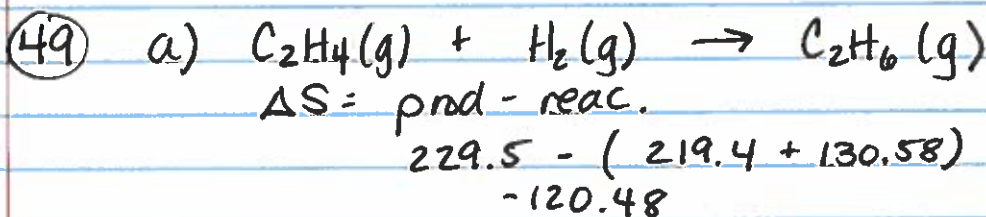 49 a) C₂H₄(g) + H₂(g) → C₂H₆(g)
ΔS = prod - reac.
229.5 - ( 219.4 + 130.58)
-120.48